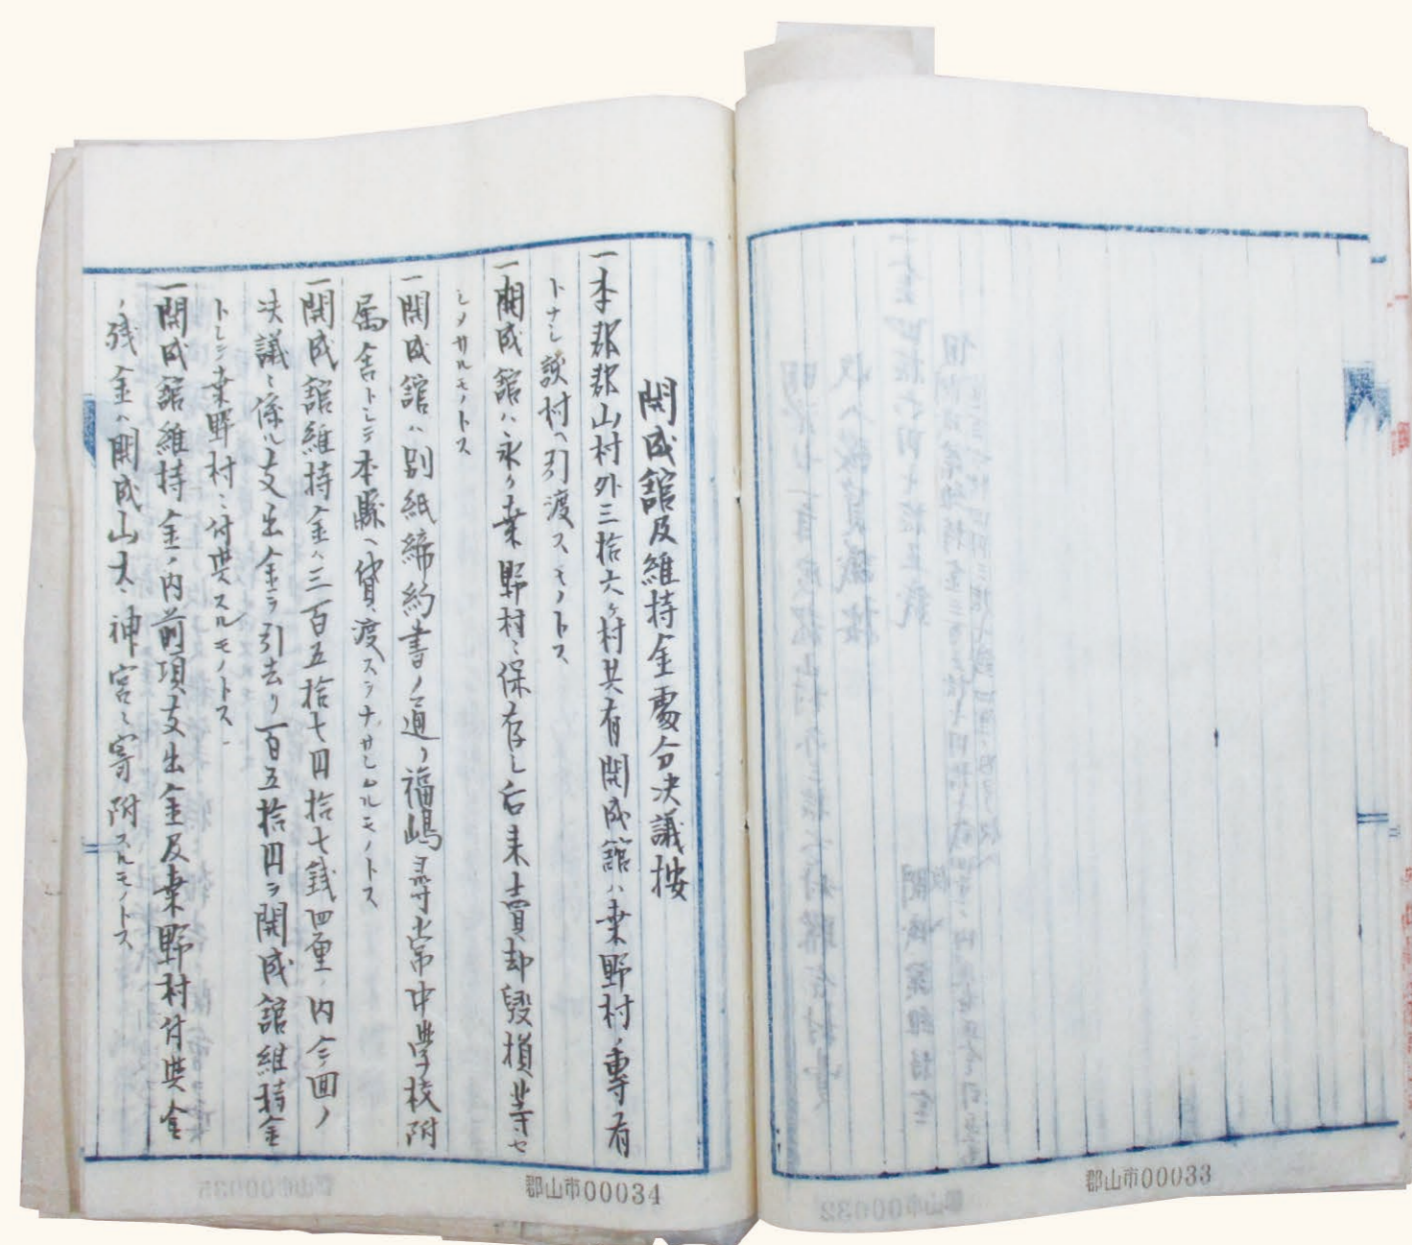 開成館及維持金處分决議按
一本郡郡山村外三拾六ヶ村共有開成館ハ桒野村ノ專有
トナシ該村ヘ引渡スモノトス
一開成館ハ永ク桒野村ニ保存シ后来賣却毀損等セ
シメサルモノトス
一開成館ハ別紙締約書ノ通リ福嶋尋常中學校附
属舎トシテ本縣ヘ貸渡スヲナサシムルモノトス
一開成館維持金ハ三百五拾七円拾七銭四厘ノ内今回ノ
决議ニ係ル支出金ヲ引去リ一百五拾円ヲ開成館維持金
トシテ桒野村ニ付與スルモノトス
一開成館維持金ノ内前項支出金及桒野村付與金
ノ残金ハ開成山大神宮ニ寄附スルモノトス
郡山市00034
郡山市00033